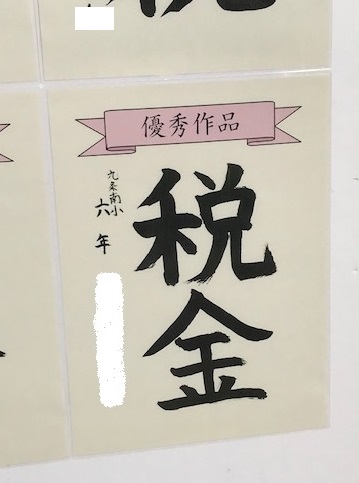 優秀作品
税金
九条南小
六年